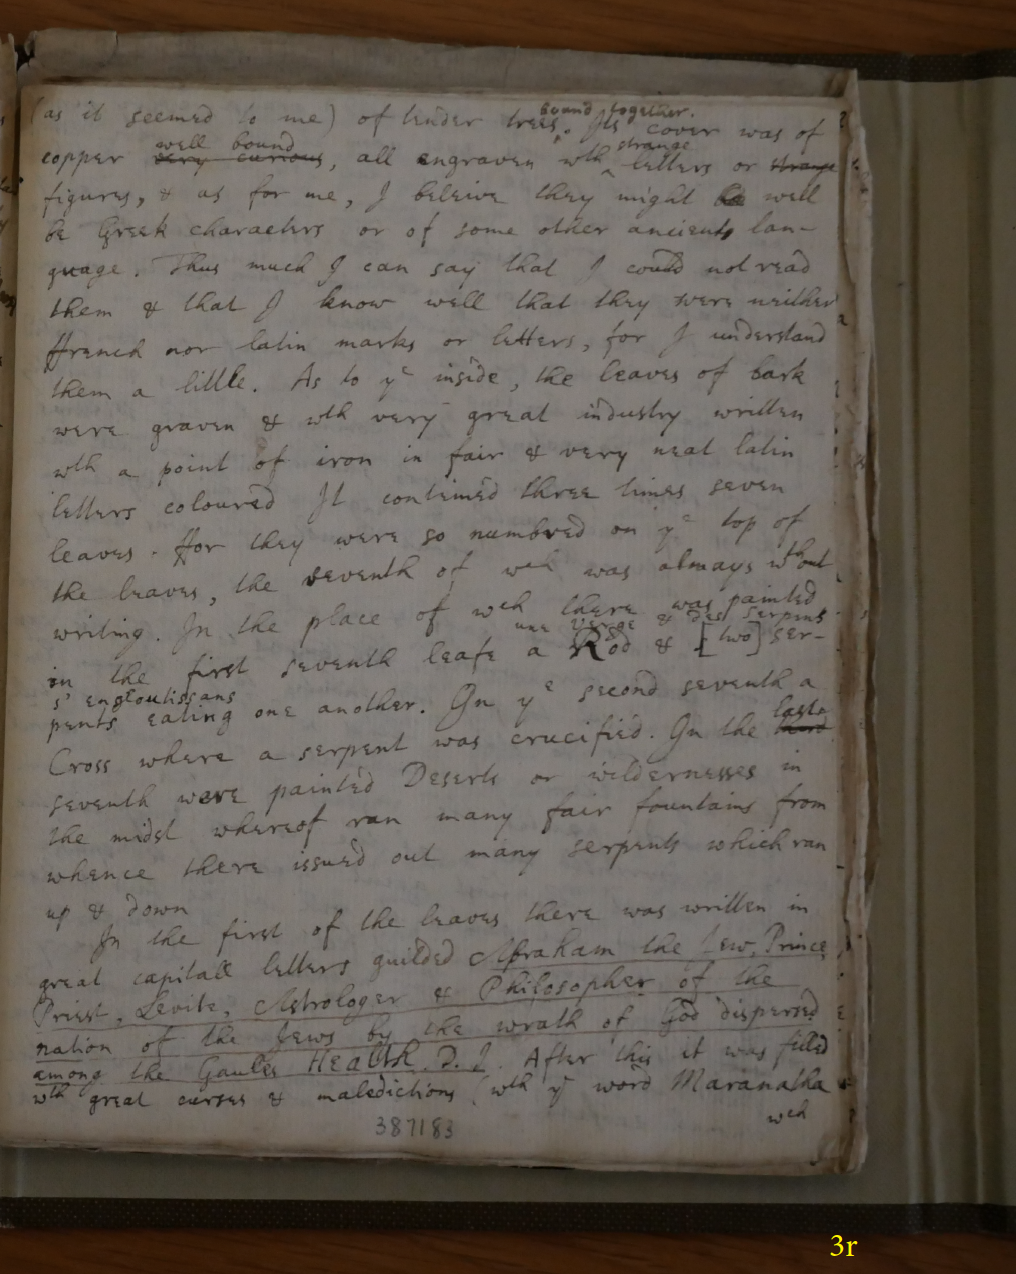 (as it seemed to me) of tender trees bound together. Its cover was of
copper very curious well bound, all engraven wth strange letters or strange
figures, & as for me, I beleive they might be well
be Greek characters or of some other ancient lan-
guage. Thus much I can say that I could not read
them & that I know well that they were neither
ffrench nor latin marks or letters, for I understand
them a little. As to ye inside, the leaves of bark
were graven & wth very great industry written
wth a point of iron in fair & very neat latin
letters coloured It conteined three times seven
leaves. ffor they were so numbred on ye top of
the leaves, the seventh of wch was always wthout
writing. In the place of wch there was painted
in the first seventh leafe a Rod & [two] ser-
une verge & des serpens
s'engloutissans
pents eating one another. In ye second seventh a
Cross where a serpent was crucified. In the third last
seventh were painted Deserts or wildernesses in
the midst whereof ran many fair fountains from
whence there issued out many serpents which ran
up & down
In the first of the leaves there was written in
great capitall letters guilded Abraham the Jew, Prince
Priest, Levite, Astrologer & Philosopher of the
nation of the Jews by the wrath of God dispersed
among the Gaules Health. D. I. After this it was filled
wth great curses & maledictions (wth ye word Maranatha
wch
387183
3r